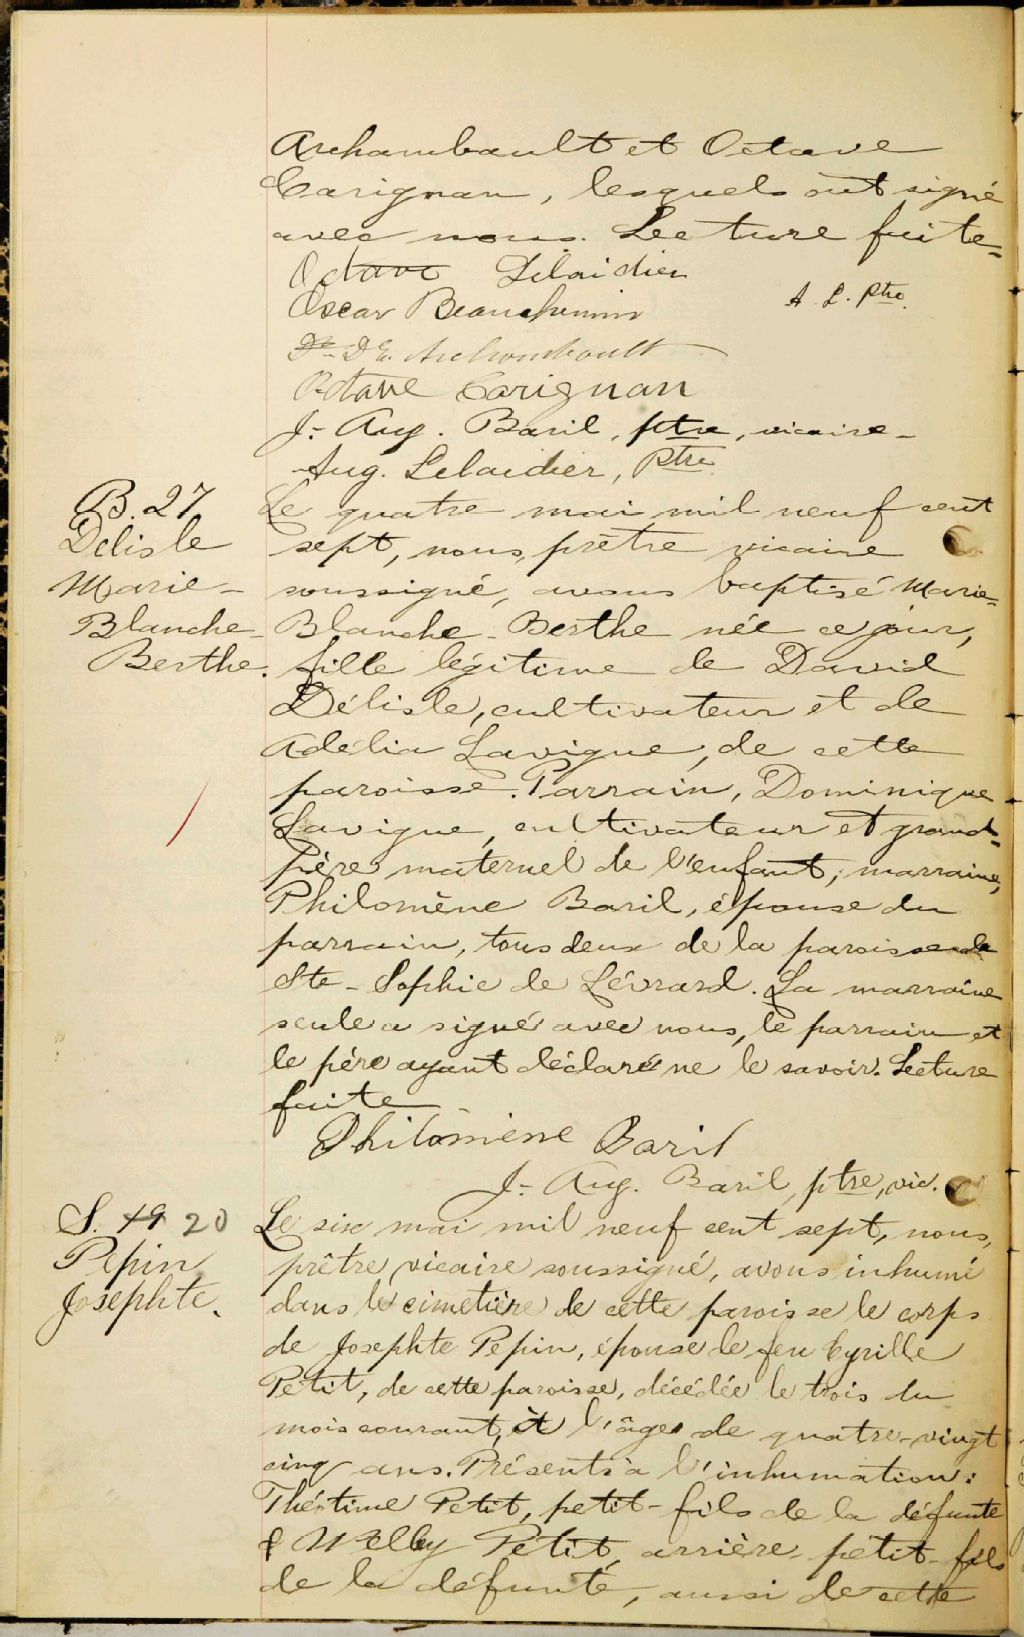 Archambault et Octave
Carignan, lesquels ont signé
avec nous. Lecture faite=
Octave Lelaidier
A. L. Ptre.
Oscar Beauchemin
Dr. D. E. Archambault
Octave Carignan
J.- Aug. Baril, ptre, vicaire-
Aug. Lelaidier, Ptre
B. 27
Delisle
Marie-
Blanche-
Berthe.
Le quatre mai mil neuf cent
sept, nous, prêtre vicaire
soussigné, avons baptisé Marie=
Blanche-Berthe née ce jour,
fille légitime de David
Délisle, cultivateur et de
Adélia Lavigne, de cette
paroisse. Parrain, Dominique
Lavigne, cultivateur et grand=
père maternel de l'enfant; marraine,
Philomène Baril, épouse du
parrain, tous deux de la paroisse de
Ste-Sophie de Lévrard. La marraine
seule a signé avec nous, le parrain et
le père ayant déclaré ne le savoir. Lecture
faite
Philomène Baril
J.- Aug. Baril, ptre, vic.
S. 19 20
Pepin
Josephte.
Le six mai mil neuf cent sept, nous,
prêtre vicaire soussigné, avons inhumé
dans le cimetière de cette paroisse le corps
de Josephte Pepin, épouse de feu Cyrille
Petit, de cette paroisse, décédée le trois du
mois courant, à l'âge de quatre-vingt
cinq ans. Présents à l'inhumation:
Théotime Petit, petit-fils de la défunte
& Welley Petit, arrière-petit-fils
de la défunte, aussi de cette